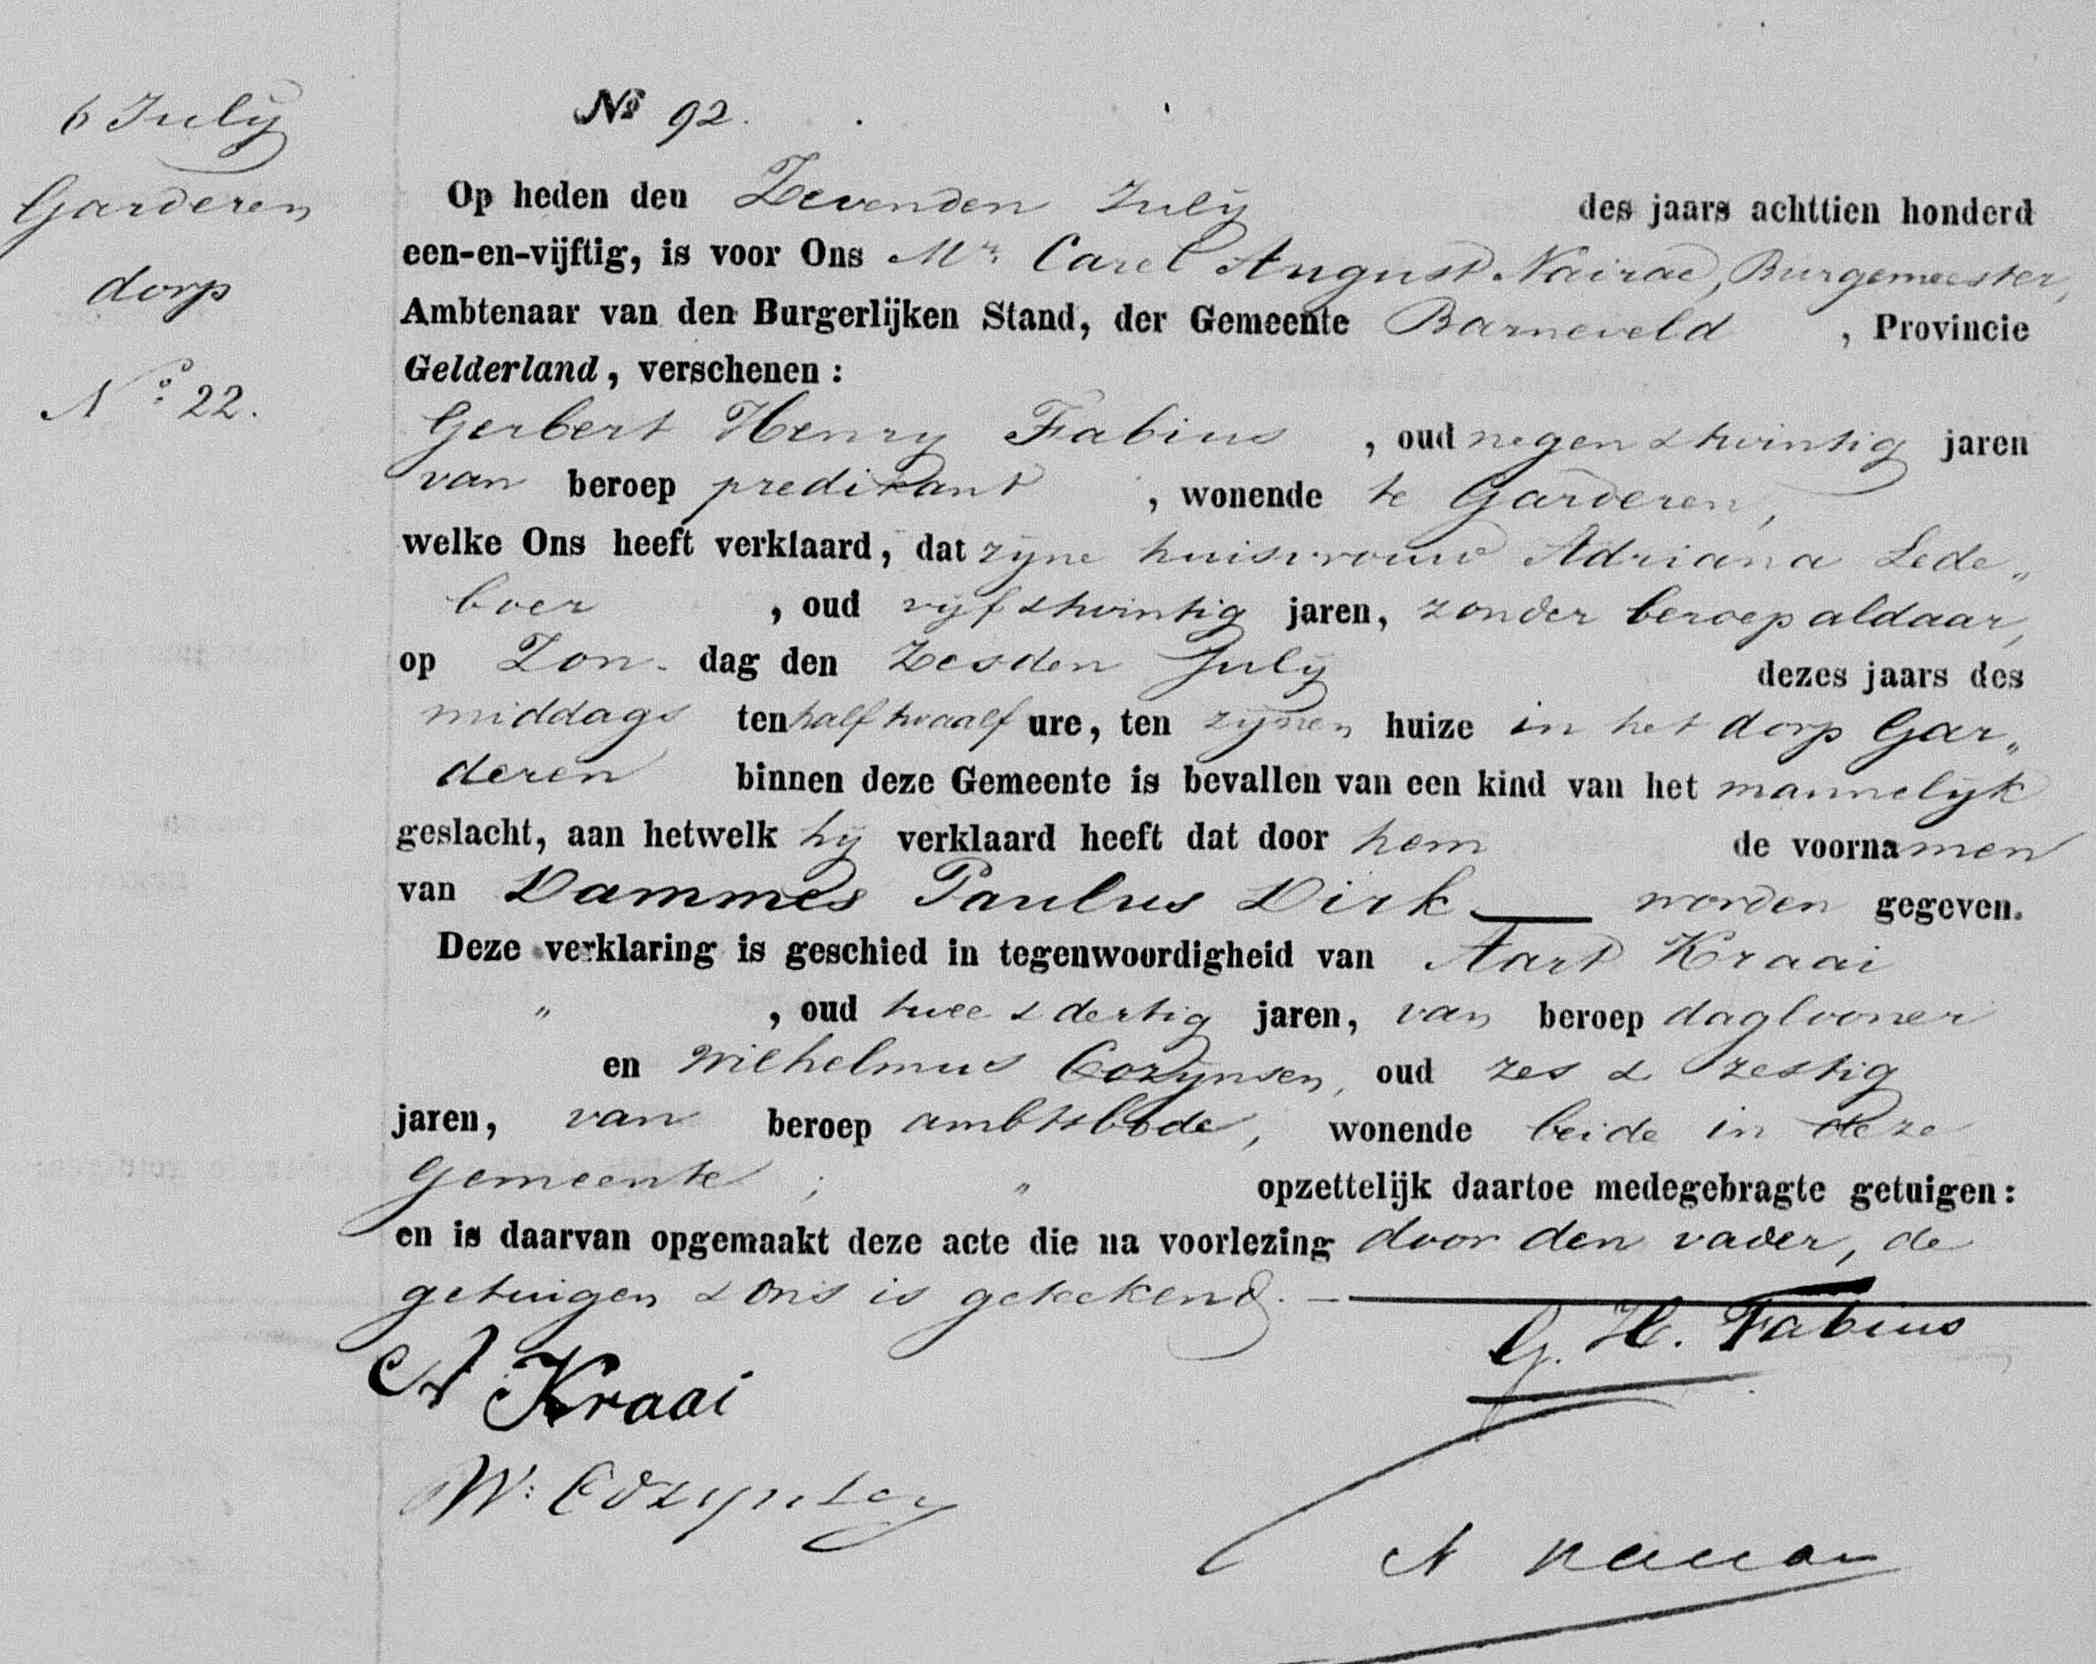 6 July
Garderen
dorp
No. 22.
No 92.
Op heden den Zevenden July des jaars achttien honderd
een-en-vijftig, is voor Ons Mr. Carel August Nairac, Burgemeester,
Ambtenaar van den Burgerlijken Stand, der Gemeente Barneveld , Provincie
Gelderland, verschenen :
Gerbert Henry Fabius , oud negen & twintig jaren
van beroep predikant , wonende te Garderen,
welke Ons heeft verklaard, dat zyne huisvrouw Adriana Lede„
boer , oud vyf & twintig jaren, zonder beroep aldaar,
op Zon- dag den Zesden July dezes jaars des
middags ten half twaalf ure, ten zynen huize in het dorp Gar„
deren binnen deze Gemeente is bevallen van een kind van het mannelyk
geslacht, aan hetwelk hy verklaard heeft dat door hem de voornamen
van Dammes Paulus Dirk worden gegeven.
Deze verklaring is geschied in tegenwoordigheid van Aart Kraai
„ , oud twee & dertig jaren, van beroep daglooner
en Wilhelmus Cozynsen, oud zes & zestig
jaren, van beroep ambtsbode, wonende beide in deze
Gemeente ; „ opzettelijk daartoe medegebragte getuigen:
en is daarvan opgemaakt deze acte die na voorlezing door den vader, de
getuigen & ons is geteekend.
G. H. Fabius
A Kraai
W: Cozynsen